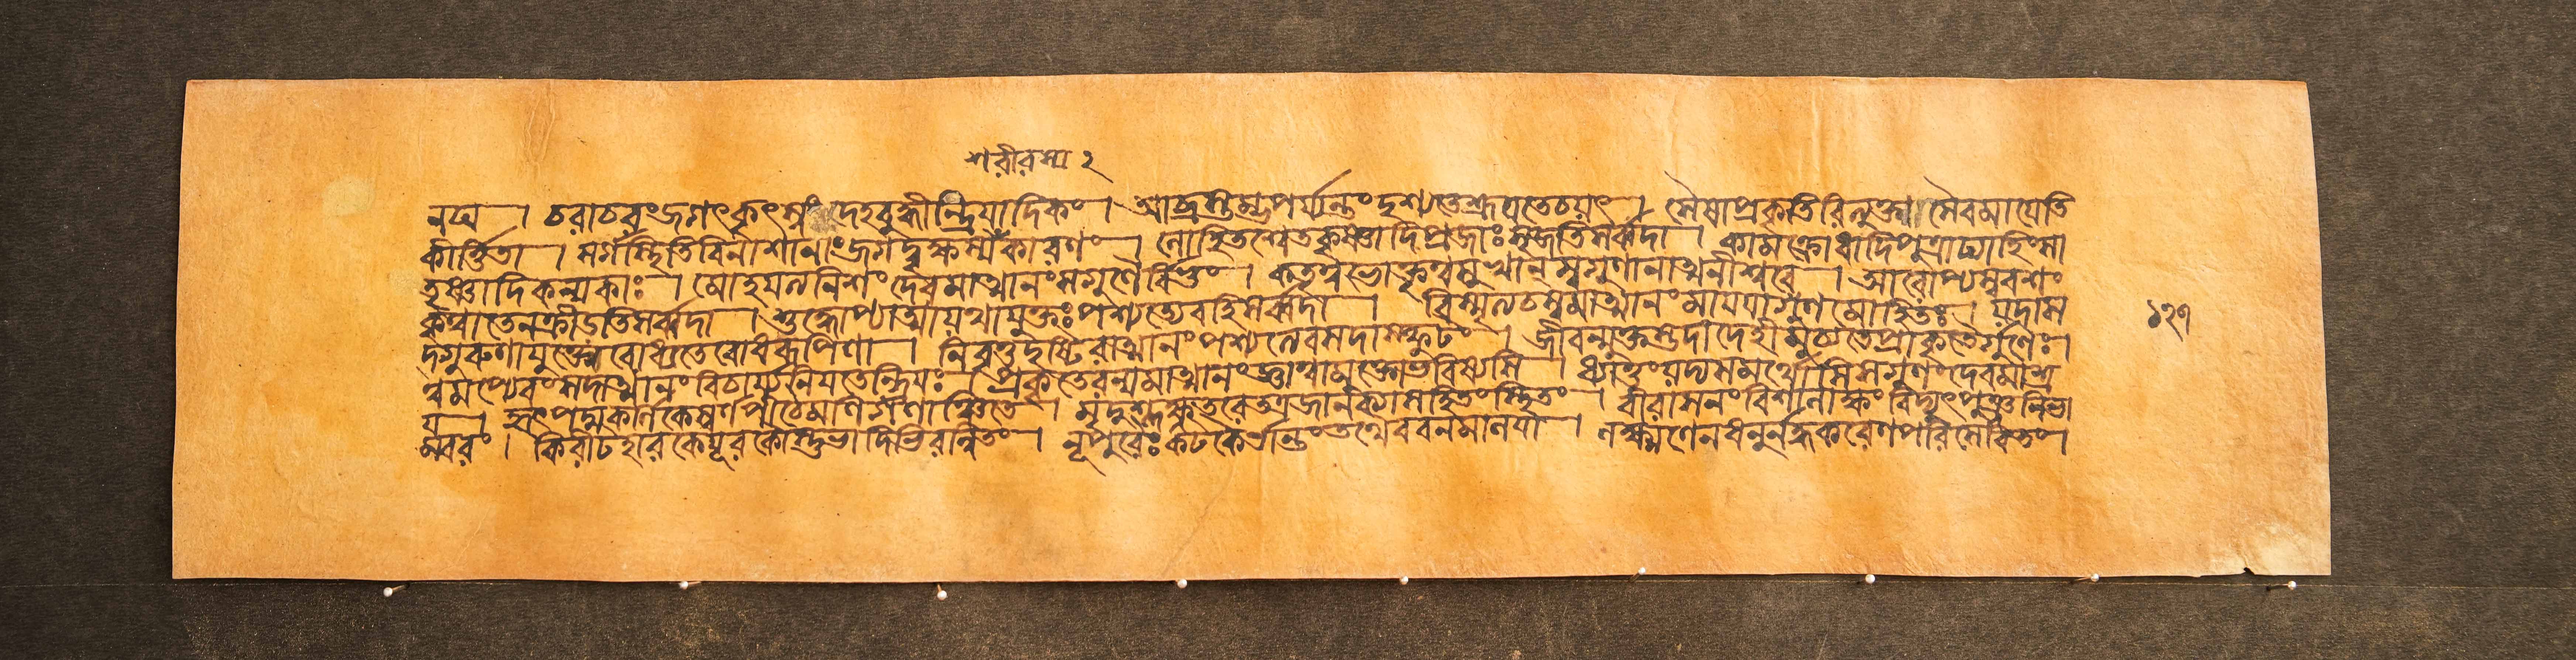 শরীরস্য ২
নঘ্য । চরাচরং জগৎকৃৎস্নং দেহবুদ্ধীন্দ্রিয়াদিকং । আব্রহ্মস্তম্বপর্য্যন্তং দৃশ্যতেশ্রূয়তেচয়ৎ । সৈষাপ্রকৃতিরিত্যুক্তা সৈবমায়েতি
কীর্ত্তিতা । সর্গস্থিতিবিনাশানাং জগদ্বৃক্ষস্য কারণং । লোহিতশ্বেতকৃষ্ণাদিপ্রজাঃ সৃজতিসর্ব্বদা । কামক্রোধাদিপুত্রাদ্যাহিংসা
তৃষ্ণাদিকন্যকাঃ । মোহয়ত্যনিশং দেবমাত্মানং স্বগুণৈর্বিভুং । কর্তৃত্বভোক্তৃত্বমুখান্ স্বগুণানাত্মনীশ্বরে । আরোপ্যস্ববশং
কৃত্বাতেনক্রীডতিসর্ব্বদা । শুদ্ধোপ্যাত্মায়থাযুক্তঃ পশ্যত্যেবহিসর্ব্বদা । বিস্মৃত্যচস্বমাত্মানং মায়য়াগুণমোহিতঃ । য়দাস
দ্গুরুণাযুক্তো বোধ্যতেবোধরূপিণা । নিবৃত্তদৃষ্টিরাত্মানং পশ্যত্যেবসদাস্ফুটং । জীবন্মুক্তস্তদাদেহী মুচ্যতেপ্রাকৃতৈর্গুণৈঃ ।
ত্বমপ্যেবং সদাত্মানং বিচার্য্য নিয়তেন্দ্রিয়ঃ । প্রকৃতেরন্যমাত্মানং জ্ঞাত্বামুক্তোভবিষ্যসি । ধ্যাতুং য়দ্যসমর্থোসিসগুণং দেবমাশ্র
য় । হৃৎপদ্মকর্ণিকেস্বর্ণপীঠেমণিগণান্বিতে । মৃদুশ্লক্ষ্ণতরেতত্রজানক্যাসহিতং স্থিতং । বীরাসনং বিশালাক্ষং বিদ্যুৎপুঞ্জনিভা
ম্বরং । কিরীটহারকেয়ূরকৌস্তুভাদিভিরন্বিতং । নূপুরৈঃ কটকৈর্ভান্তং তথৈববনমালয়া । লক্ষ্মণেনধনুর্দ্বন্দ্বকরেণপরিসেবিতং ।
১২৭